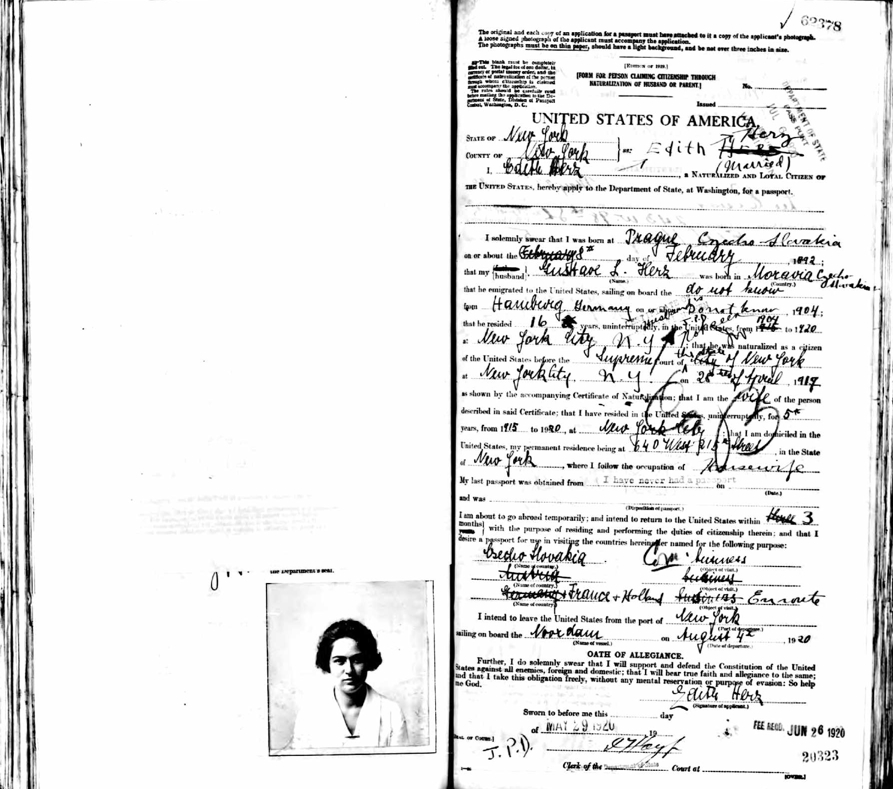 62378
The original and each copy of an application for a passport must have attached to it a copy of the applicant's photograph.
A loose signed photograph of the applicant must accompany the application.
The photographs must be on thin paper, should have a light background, and be not over three inches in size.
[FORM FOR PERSON CLAIMING CITIZENSHIP THROUGH
NATURALIZATION OF HUSBAND OR PARENT.]
No.
Issued
DEPARTMENT OF STATE
UNITED STATES OF AMERICA,
STATE OF New York
COUNTY OF New York
Edith Herz
(Married)
I, Edith Herz, a NATURALIZED AND LOYAL CITIZEN OF
THE UNITED STATES, hereby apply to the Department of State, at Washington, for a passport.
I solemnly swear that I was born at Prague, Czecho-Slovakia
on or about the day of February, 1892;
that my (husband) Gustave L. Herz was born in Moravia Czecho Slovakia
(Name.) (Country.)
that he emigrated to the United States, sailing on board the do not know
from Hamburg, Germany on or about Do not know, 1904;
that he resided 16 years, uninterruptedly, in the United States, from 1904 to 1920
at New York City N.Y.; that he was naturalized as a citizen
of the United States before the Supreme Court of New York
at New York City N.Y. on of April, 1917
as shown by the accompanying Certificate of Naturalization; that I am the wife of the person
described in said Certificate; that I have resided in the United States, uninterruptedly, for 5
years, from 1915 to 1920, at New York City; that I am domiciled in the
United States, my permanent residence being at 640 West 215 Street, in the State
of New York, where I follow the occupation of Housewife
My last passport was obtained from I have never had a passport on
(Date.)
and was
(Disposition of passport.)
I am about to go abroad temporarily; and intend to return to the United States within 3
months with the purpose of residing and performing the duties of citizenship therein; and that I
desire a passport for use in visiting the countries hereinafter named for the following purpose:
Czecho Slovakia Com. business
(Name of country.) (Object of visit.)
Austria business
(Name of country.) (Object of visit.)
Germany + France + Holland business En route
(Name of country.) (Object of visit.)
I intend to leave the United States from the port of New York
(Port of departure.)
sailing on board the Noordam on August 4th, 1920
(Name of vessel.) (Date of departure.)
OATH OF ALLEGIANCE.
Further, I do solemnly swear that I will support and defend the Constitution of the United
States against all enemies, foreign and domestic; that I will bear true faith and allegiance to the same;
and that I take this obligation freely, without any mental reservation or purpose of evasion: So help
me God.
Edith Herz
(Signature of applicant.)
Sworn to before me this day
of MAY 29 1920, 19
FEE RECD. JUN 26 1920
J.P.D.
20323
Clerk of the Court at
[OVER.]
the Department's seal.